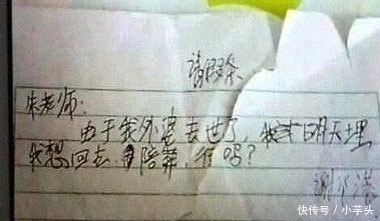 请假条
朱老师：
由于我外婆去世了，我才明天埋
我想回去陪葬，行吗？
谢
快传号 / 小芋头